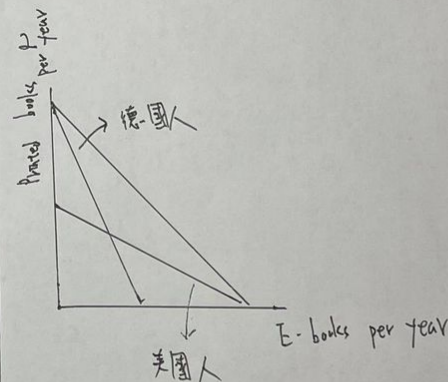 Printed books per year
德國人
E-books per year
美國人